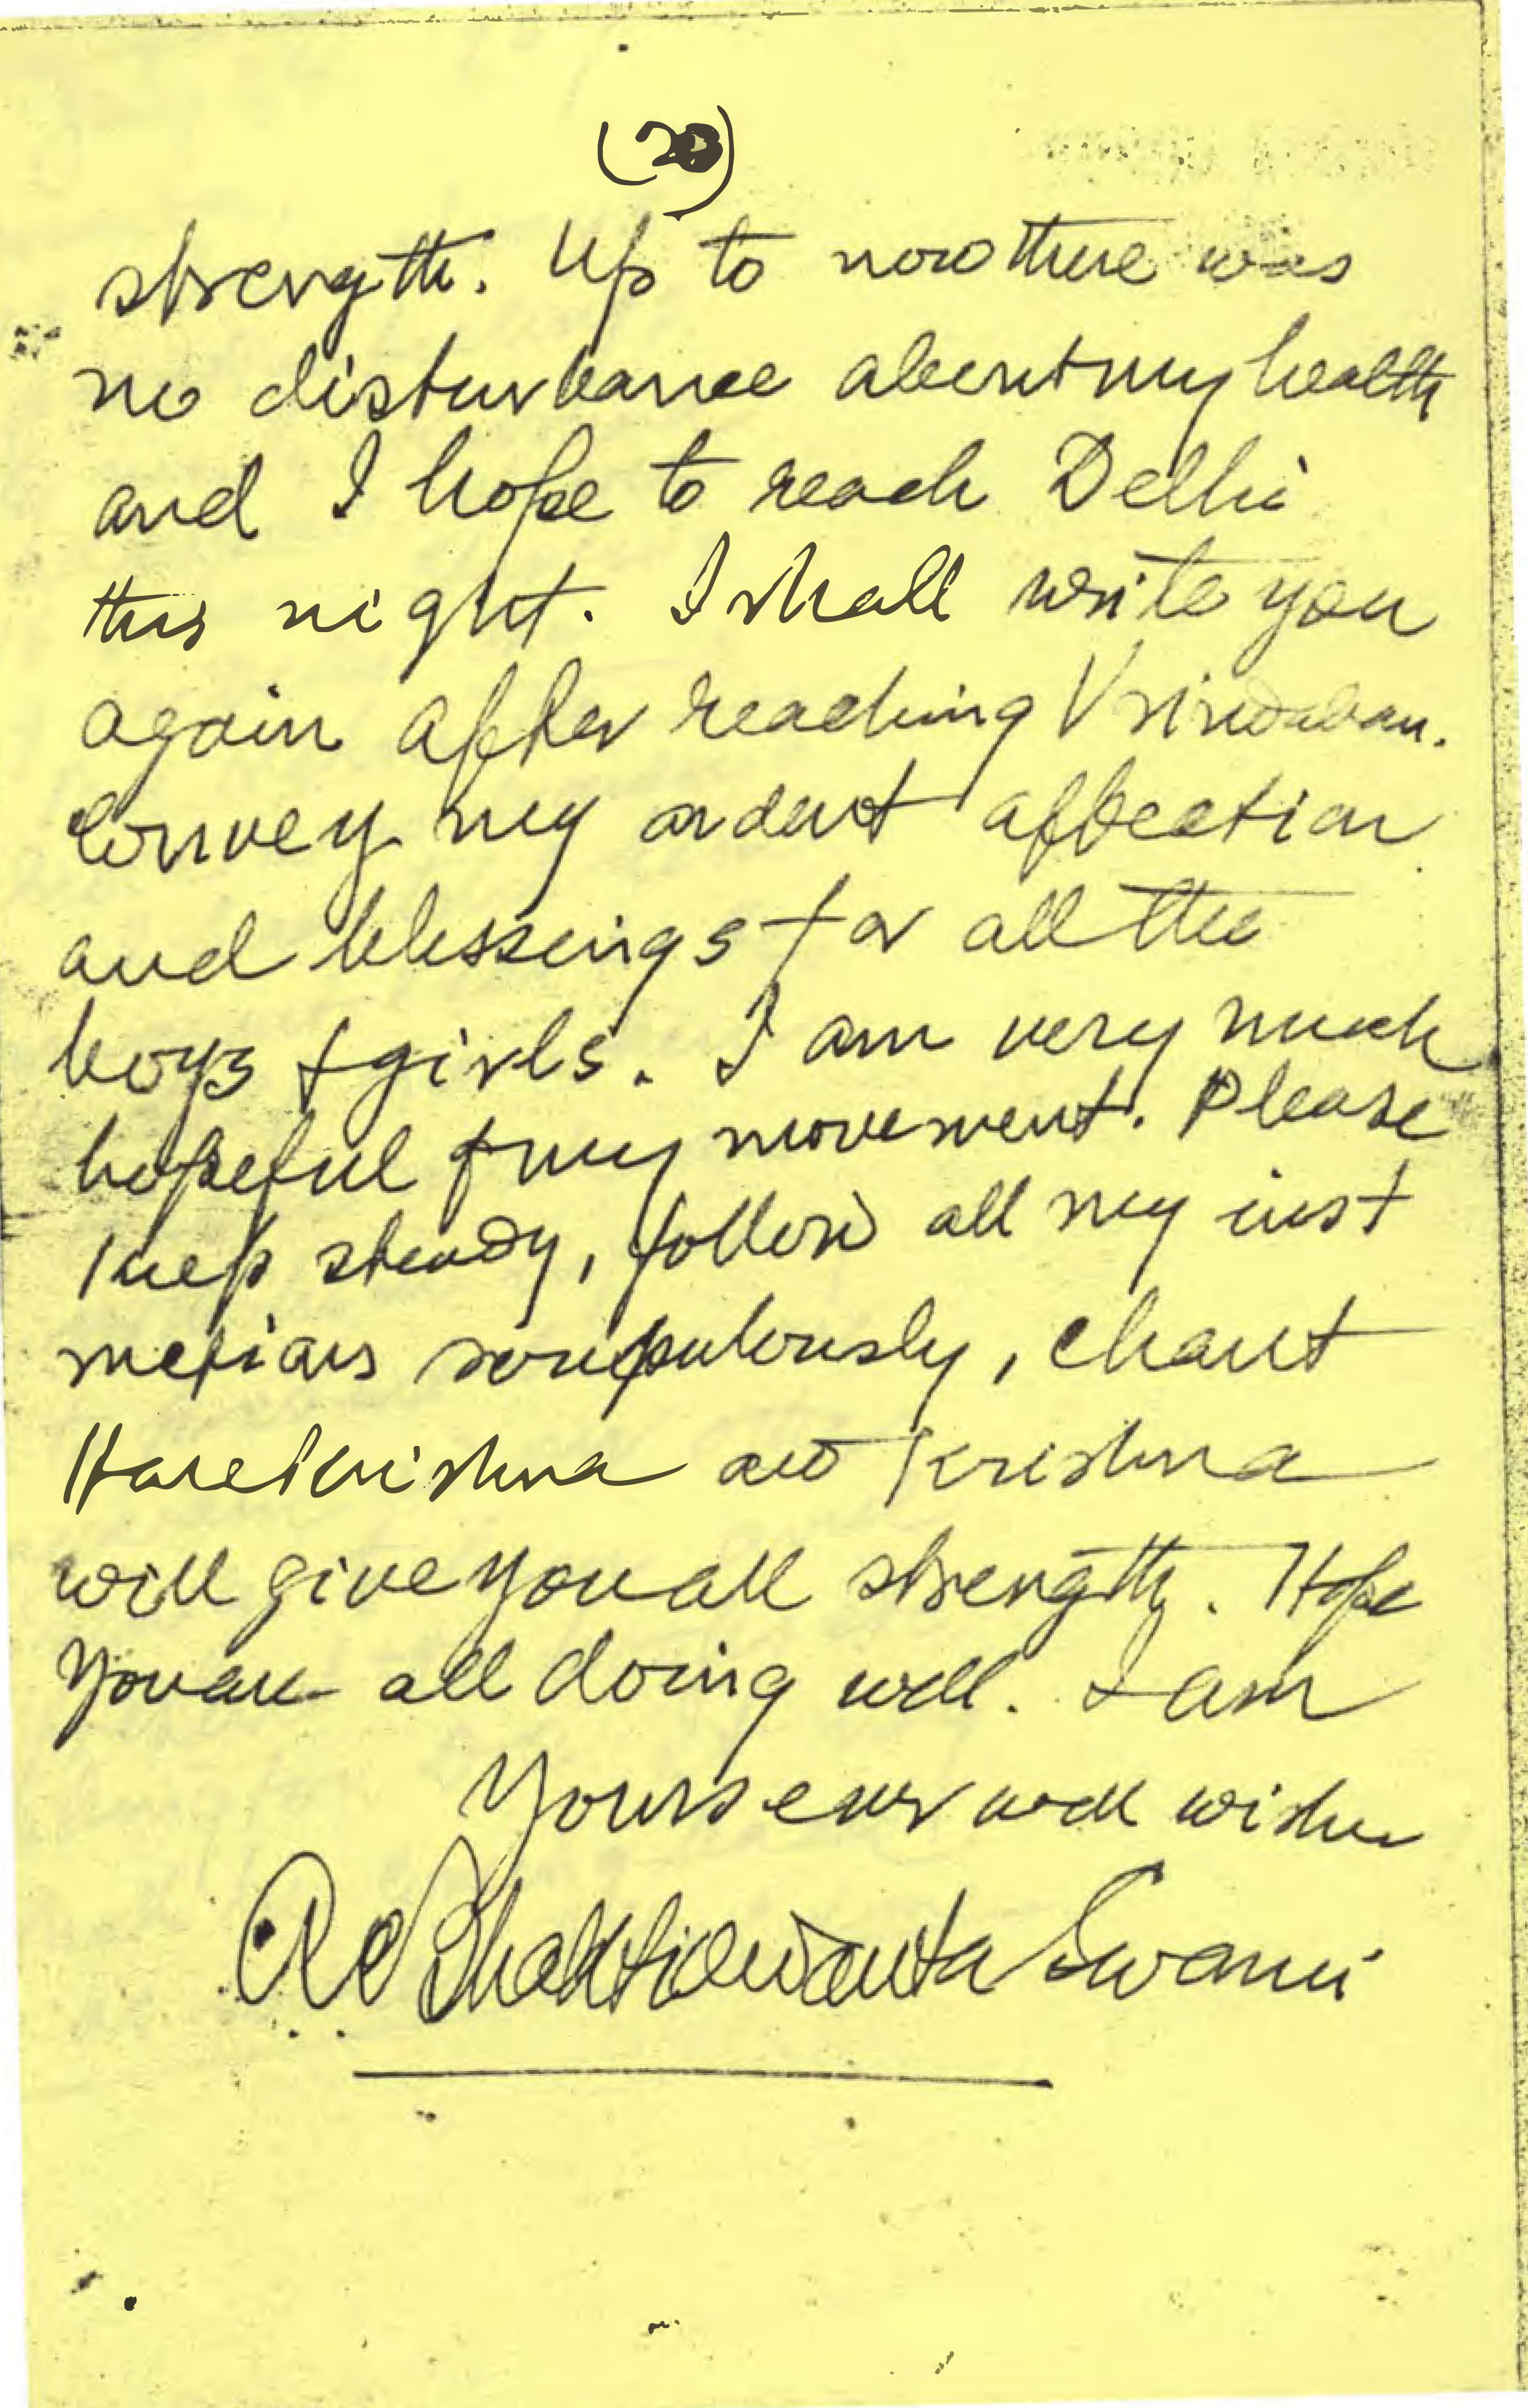 strength. Up to now there was
no disturbance about my health
and I hope to reach Delhi
this night. I shall write you
again after reaching Vrindaban.
Convey my ardent affection
and blessings for all the
boys & girls. I am very much
hopeful of my movement. Please
keep steady, follow all my inst
ructions scrupulously, chant
Hare Krishna and Krishna
will give you all strength. Hope
you are all doing well. I am
Yours ever well wisher
A C Bhaktivedanta Swami